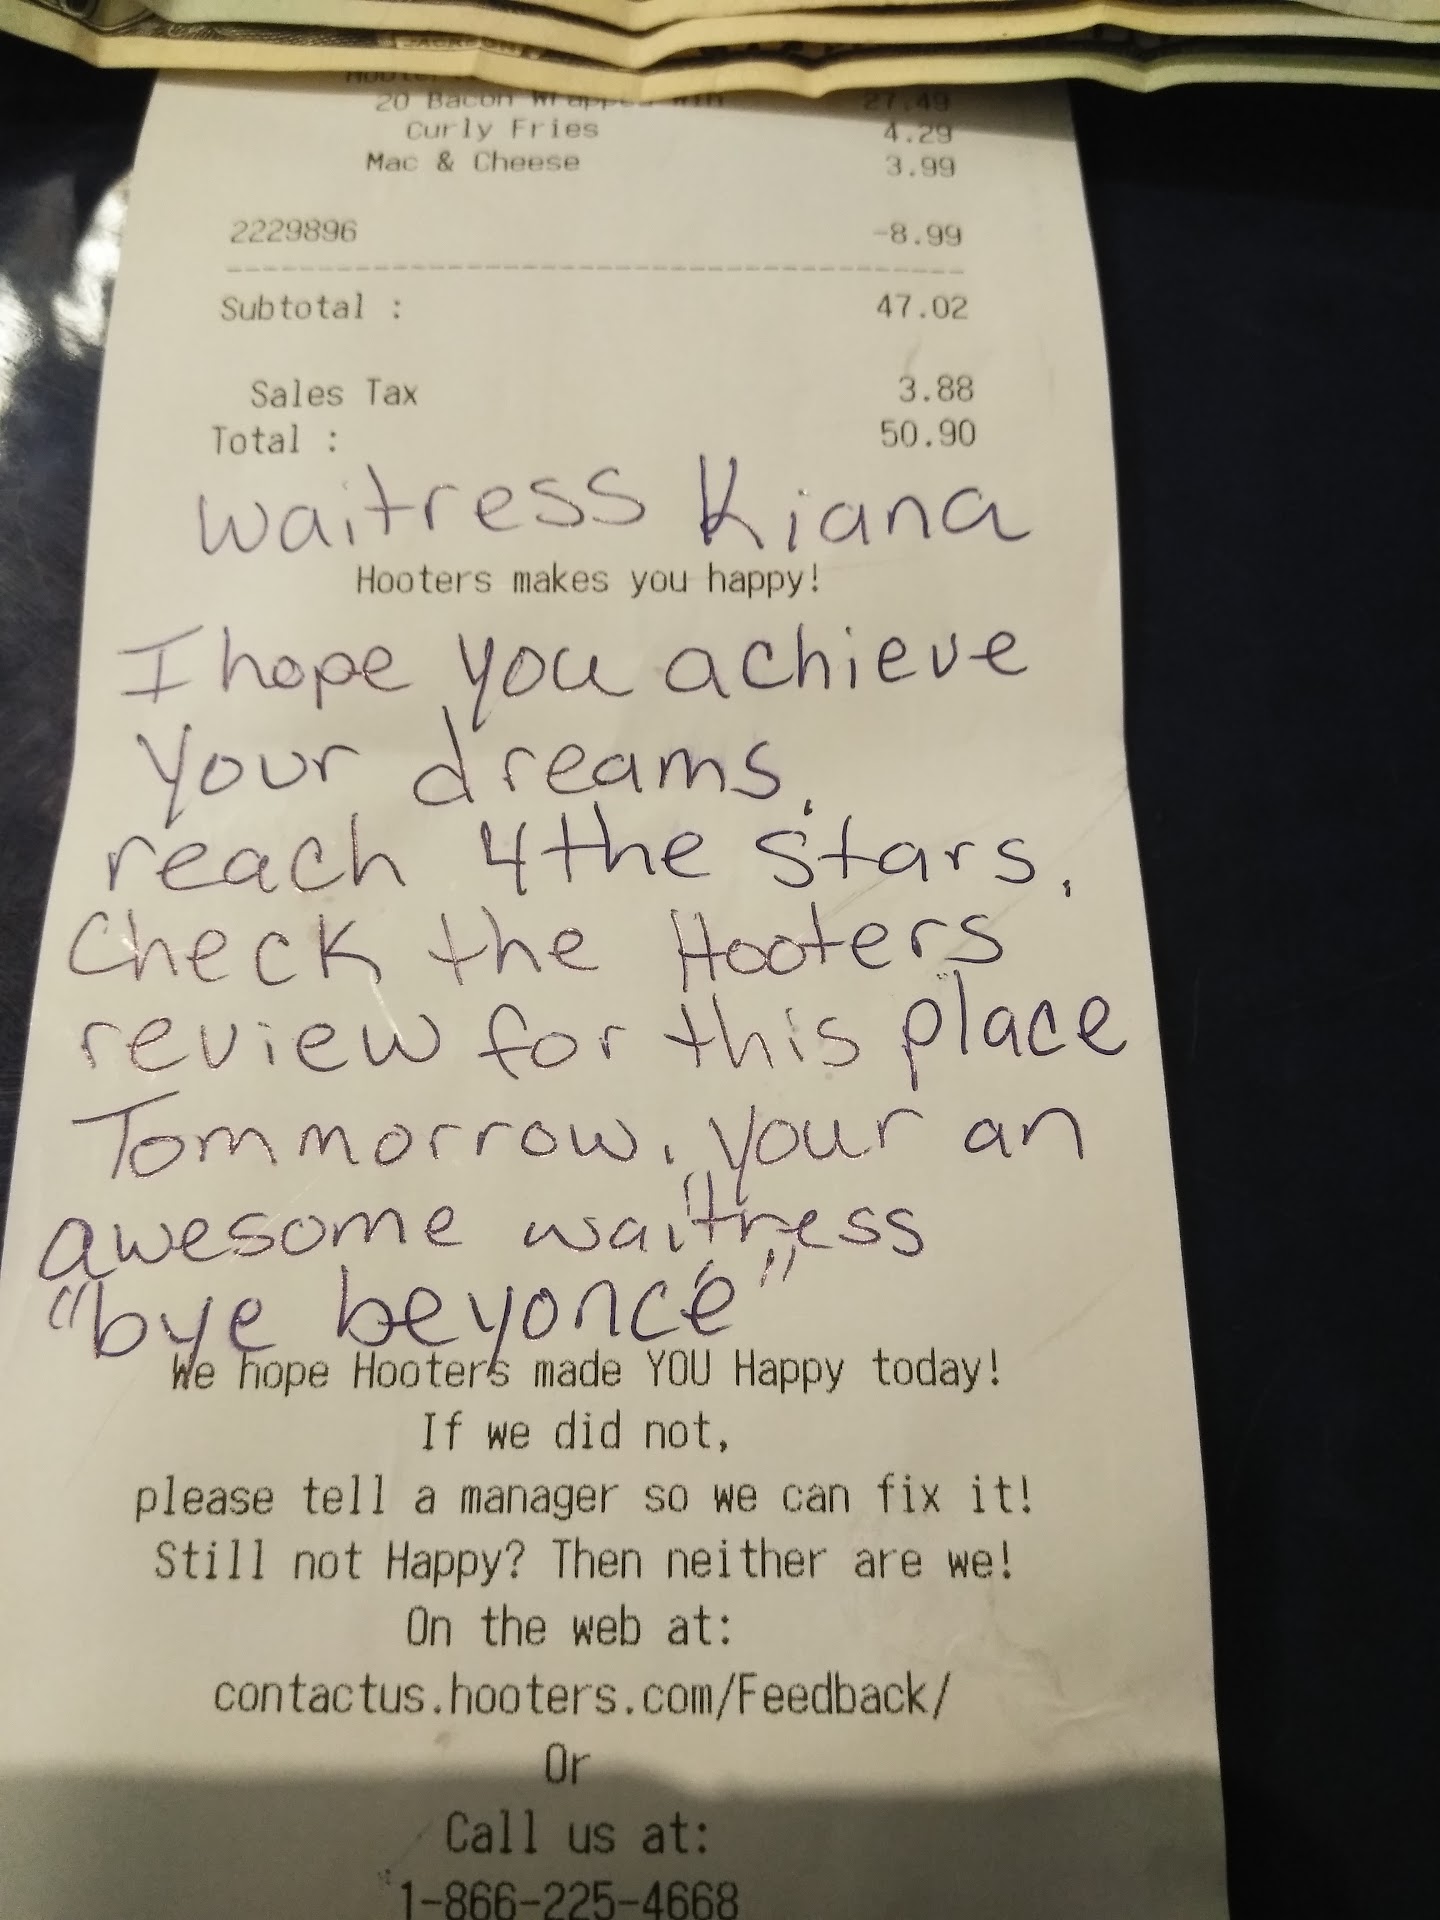 JACKSON
20 Bacon Wrapped Win 27.49
Curly Fries 4.29
Mac & Cheese 3.99
2229896 -8.99
Subtotal : 47.02
Sales Tax 3.88
Total : 50.90
Waitress Kiana
Hooters makes you happy!
I hope you achieve
your dreams,
reach 4 the stars.
Check the Hooters
review for this place
Tommorrow. your an
awesome waitress
"bye beyoncé"
We hope Hooters made YOU Happy today!
If we did not,
please tell a manager so we can fix it!
Still not Happy? Then neither are we!
On the web at:
contactus.hooters.com/Feedback/
Or
Call us at:
1-866-225-4668